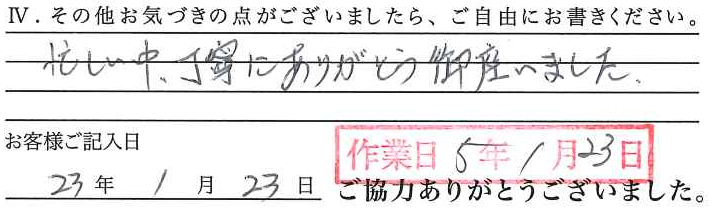 Ⅳ．その他お気づきの点がございましたら、ご自由にお書きください。
忙しい中、丁寧にありがとう御座いました。
お客様ご記入日
作業日 5年 1月23日
23年 1月 23日
ご協力ありがとうございました。